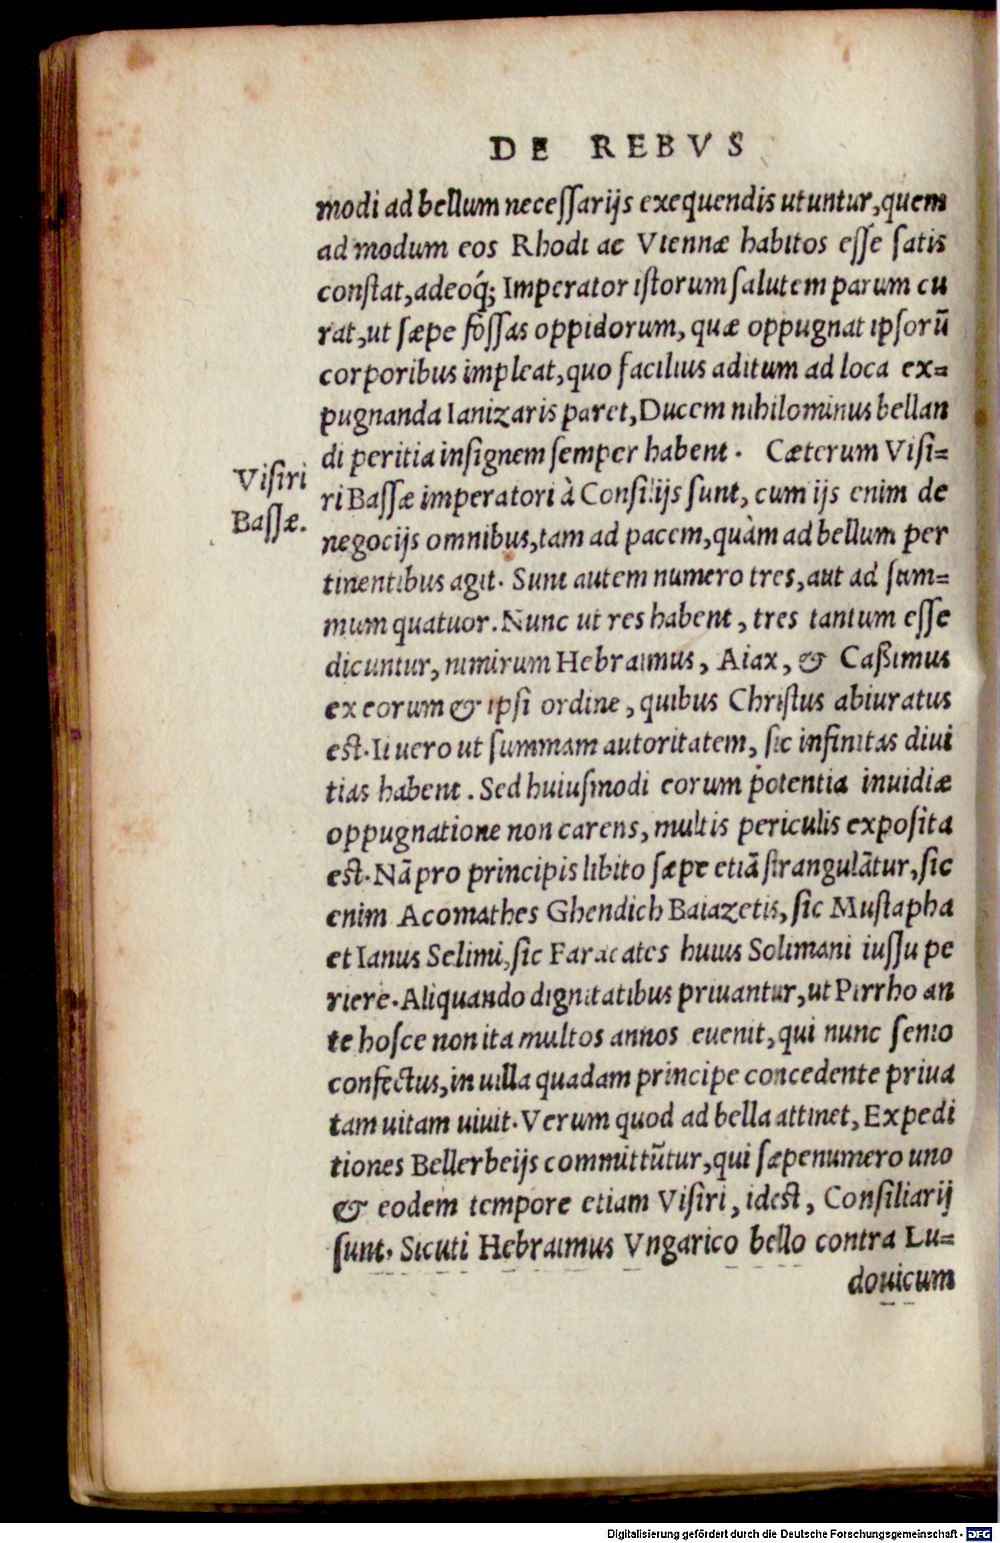 DE REBVS
modi ad bellum neceſſarijs exequendis utuntur, quem
ad modum eos Rhodi ac Viennæ habitos eſſe ſatis
conſtat, adeoq́; Imperator iſtorum ſalutem parum cu
rat, ut ſæpe foſſas oppidorum, quæ oppugnat ipſorũ
corporibus impleat, quo facilius aditum ad loca ex=
pugnanda Ianizaris paret, Ducem nihilominus bellan
di peritia inſignem ſemper habent. Cæterum Viſi=
Viſiri
Baſſæ.
ri Baſſæ imperatori à Conſilijs ſunt, cum ijs enim de
negocijs omnibus, tam ad pacem, quàm ad bellum per
tinentibus agit. Sunt autem numero tres, aut ad ſum=
mum quatuor. Nunc ut res habent, tres tantum eſſe
dicuntur, nimirum Hebraimus, Aiax, & Caßimus
ex eorum & ipſi ordine, quibus Chriſtus abiuratus
eſt. Ii uero ut ſummam autoritatem, ſic infinitas diui
tias habent. Sed huiuſmodi eorum potentia inuidiæ
oppugnatione non carens, multis periculis expoſita
eſt. Nã pro principis libito ſæpe etiã ſtrangulãtur, ſic
enim Acomathes Ghendich Baiazetis, ſic Muſtapha
et Ianus Selimi, ſic Faracates huius Solimani iuſſu pe
riere. Aliquando dignitatibus priuantur, ut Pirrho an
te hoſce non ita multos annos euenit, qui nunc ſenio
confectus, in uilla quadam principe concedente priua
tam uitam uiuit. Verum quod ad bella attinet, Expedi
tiones Bellerbeijs committũtur, qui ſæpenumero uno
& eodem tempore etiam Viſiri, ideſt, Conſiliarij
ſunt. Sicuti Hebraimus Vngarico bello contra Lu=
douicum
Digitalisierung gefördert durch die Deutsche Forschungsgemeinschaft - DFG